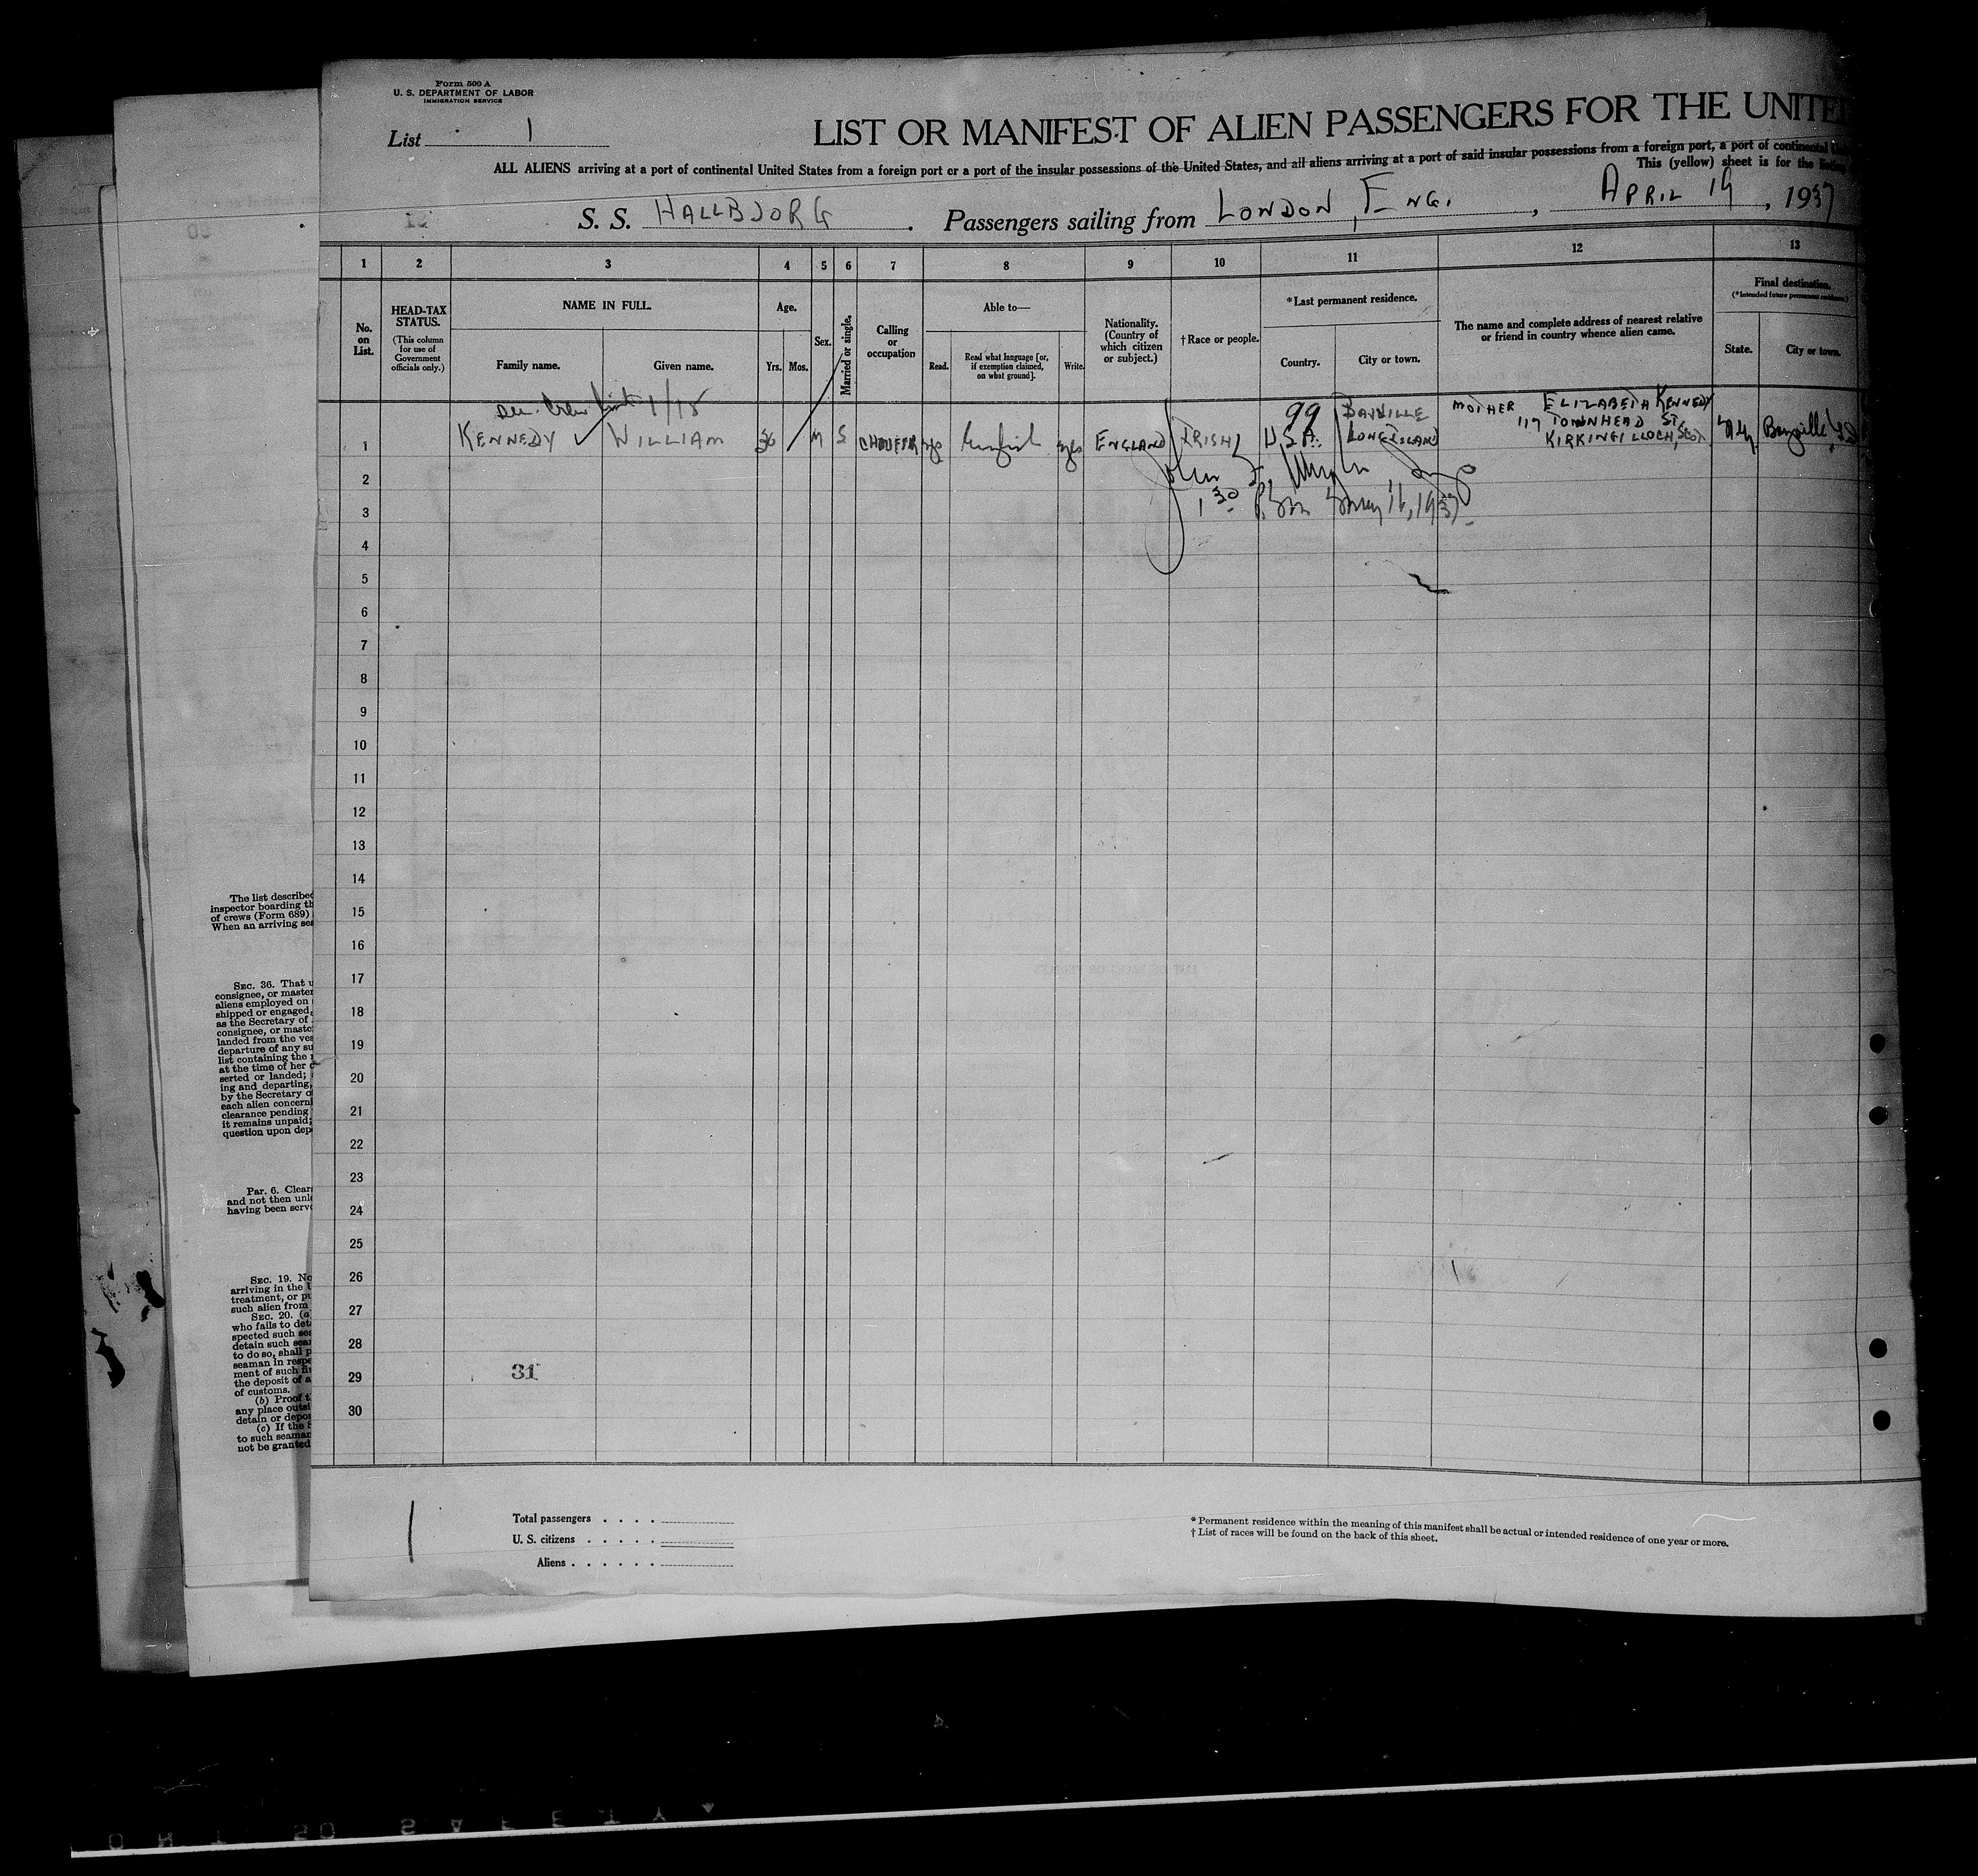 Form 500 A
U. S. DEPARTMENT OF LABOR
IMMIGRATION SERVICE
List 1
LIST OR MANIFEST OF ALIEN PASSENGERS FOR THE UNITE
ALL ALIENS arriving at a port of continental United States from a foreign port or a port of the insular possessions of the United States, and all aliens arriving at a port of said insular possessions from a foreign port, a port of continental
This (yellow) sheet is for the listing
S. S. HALLBJORG. Passengers sailing from LONDON, ENG., APRIL 19, 1937
1 2 3 4 5 6 7 8 9 10 11 12 13
No. on List.
HEAD-TAX STATUS.
(This column for use of Government officials only.)
NAME IN FULL.
Family name. Given name.
Age.
Yrs. Mos.
Sex.
Married or single.
Calling or occupation
Able to—
Read. Read what language [or, if exemption claimed, on what ground]. Write.
Nationality. (Country of which citizen or subject.)
†Race or people.
*Last permanent residence.
Country. City or town.
The name and complete address of nearest relative or friend in country whence alien came.
Final destination.
(*Intended future permanent residence.)
State. City or town.
1/18
99 BAYVILLE MOTHER ELIZABETH KENNEDY
117 TOWNHEAD ST.
1 KENNEDY WILLIAM 36 M S yes English yes ENGLAND IRISH U.S.A. LONG ISLAND KIRKINGILLOCH, SCOT N.Y. Bayville
2 John F.
3 May 16, 1937
4
5
6
7
8
9
10
11
12
13
14
15
16
17
18
19
20
21
22
23
24
25
26
27
28
29 31
30
1
Total passengers
U. S. citizens
Aliens
* Permanent residence within the meaning of this manifest shall be actual or intended residence of one year or more.
† List of races will be found on the back of this sheet.
The list described
inspector boarding th
of crews (Form 689)
When an arriving sea
SEC. 36. That u
consignee, or master
aliens employed on
shipped or engaged,
as the Secretary of
consignee, or maste
landed from the ves
departure of any su
list containing the
at the time of her
serted or landed;
ing and departing,
by the Secretary o
each alien concern
clearance pending
it remains unpaid;
question upon dep
Par. 6. Clear
and not then unl
having been serv
SEC. 19. No
arriving in the U
treatment, or pu
such alien from
SEC. 20. (a
who fails to det
spected such sea
detain such seam
to do so, shall p
seaman in respe
ment of such fi
the deposit of a
of customs.
(b) Proof t
any place outsi
detain or depor
(c) If the S
to such seaman
not be granted